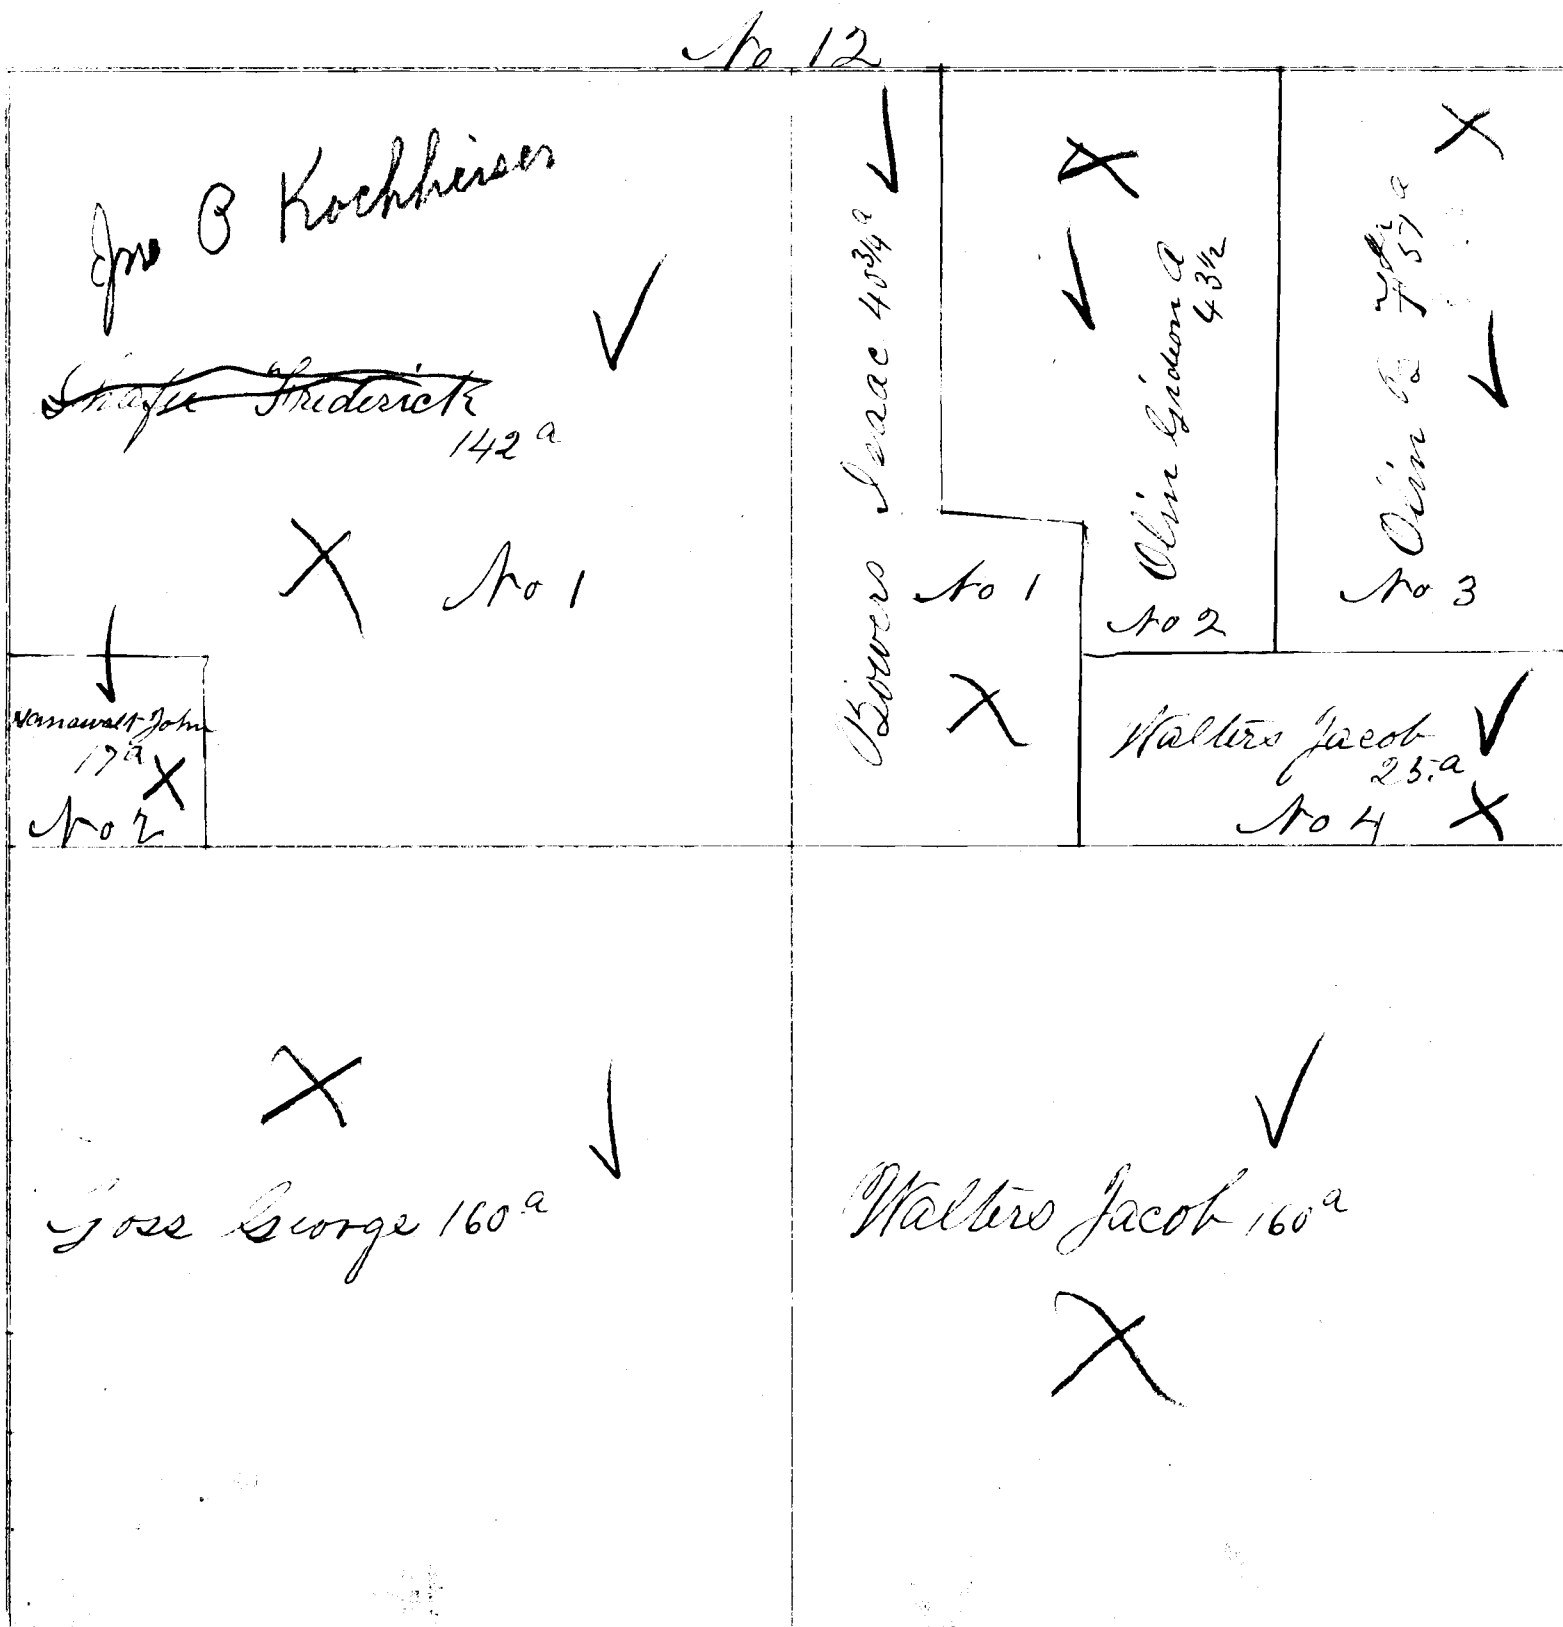 No 12
Jno B Kochheiser
Shafer Frederick
142 a
No 1
Vanawalt John
17 a
No 2
Bowers Isaac 40 3/4 a
No 1
Olin Gideon A
43 1/2
No 2
Olin
57 a
No 3
Walters Jacob
25. a
No 4
Goss George 160 a
Walters Jacob 160 a